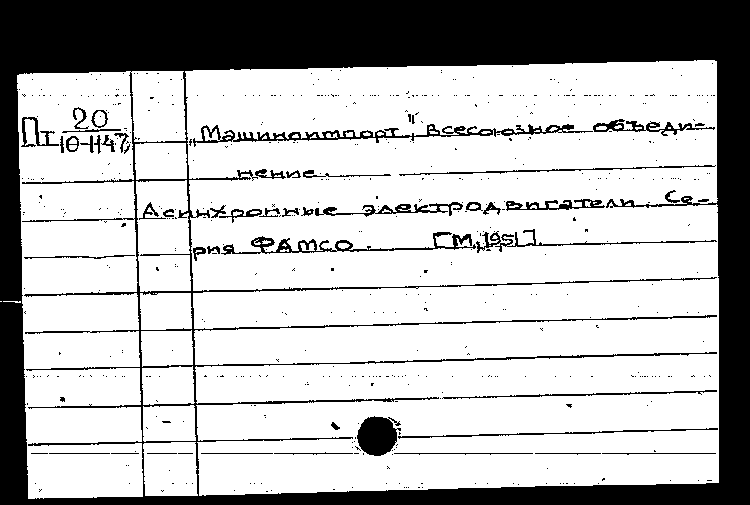 Пт 20
10-1147
„Машиноимпорт", Всесоюзное объеди-
нение.
Асинхронные электродвигатели. Се-
рия ФАМСО. [М., 1951].